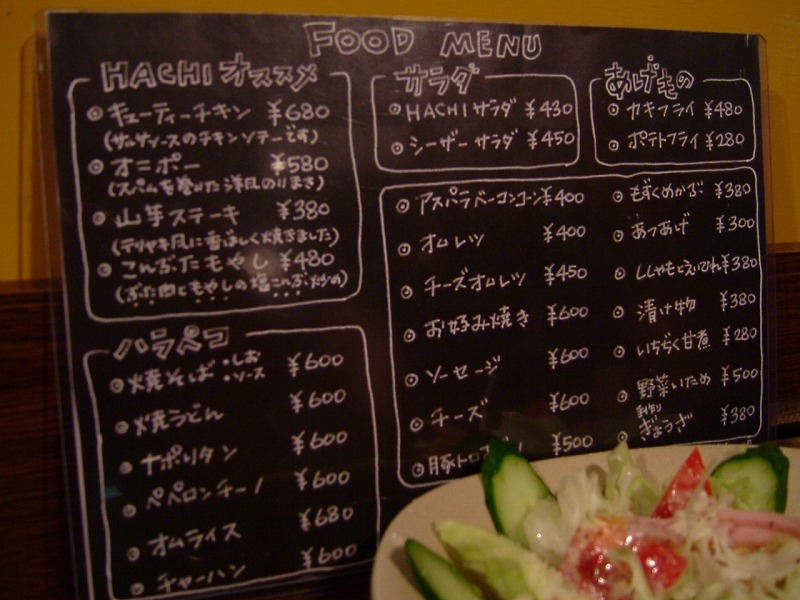 FOOD MENU
HACHI オススメ
キューティーチキン ¥680
(サルサソースのチキンソテーです)
オニポー ¥580
(スパムを巻いた洋風のりまき)
山芋ステーキ ¥380
(テリヤキ風に香ばしく焼きました)
こんぶたもやし ¥480
(ぶた肉ともやしの塩こんぶ炒め)
ハラペコ
焼そば ・しお ・ソース ¥600
焼うどん ¥600
ナポリタン ¥600
ペペロンチーノ ¥600
オムライス ¥680
チャーハン ¥600
サラダ
HACHIサラダ ¥430
シーザーサラダ ¥450
あげもの
カキフライ ¥480
ポテトフライ ¥280
アスパラベーコン ¥400
オムレツ ¥400
チーズオムレツ ¥450
お好み焼き ¥600
ソーセージ ¥600
チーズ ¥600
豚トロ ¥500
もずくめかぶ ¥380
あつあげ ¥300
ししゃもとえいひれ ¥380
漬け物 ¥380
いちぢく甘煮 ¥280
野菜いため ¥500
手作りぎょうざ ¥380